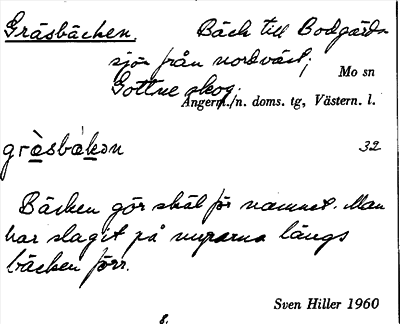 Gräsbäcken. Bäck till Bodgårds-
sjön från nordväst;
Mo sn
Gottne skog.
Ångerm./n. doms. tg, Västern. l.
grὰsbäkən 32
Bäcken gör skäl för namnet. Man
har slagit på myrarna längs
bäcken förr.
Sven Hiller 1960